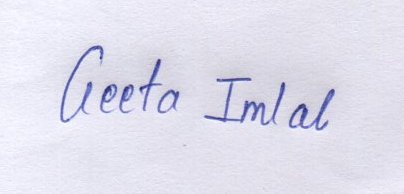 Geeta Imlal